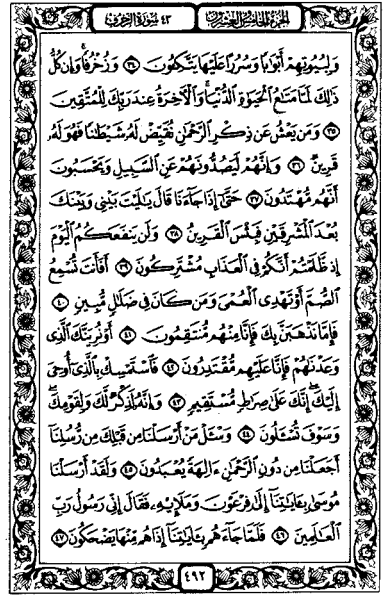 الجزء الخامس والعشرون ٤٣ سورة الزخرف
وَلِبُيُوتِهِمْ أَبْوَٰبًا وَسُرُرًا عَلَيْهَا يَتَّكِـُٔونَ ٣٤ وَزُخْرُفًا وَإِن كُلُّ
ذَٰلِكَ لَمَّا مَتَٰعُ ٱلْحَيَوٰةِ ٱلدُّنْيَا وَٱلْءَاخِرَةُ عِندَ رَبِّكَ لِلْمُتَّقِينَ
٣٥ وَمَن يَعْشُ عَن ذِكْرِ ٱلرَّحْمَٰنِ نُقَيِّضْ لَهُۥ شَيْطَٰنًا فَهُوَ لَهُۥ
قَرِينٌ ٣٦ وَإِنَّهُمْ لَيَصُدُّونَهُمْ عَنِ ٱلسَّبِيلِ وَيَحْسَبُونَ
أَنَّهُم مُّهْتَدُونَ ٣٧ حَتَّىٰٓ إِذَا جَآءَنَا قَالَ يَٰلَيْتَ بَيْنِى وَبَيْنَكَ
بُعْدَ ٱلْمَشْرِقَيْنِ فَبِئْسَ ٱلْقَرِينُ ٣٨ وَلَن يَنفَعَكُمُ ٱلْيَوْمَ
إِذ ظَّلَمْتُمْ أَنَّكُمْ فِى ٱلْعَذَابِ مُشْتَرِكُونَ ٣٩ أَفَأَنتَ تُسْمِعُ
ٱلصُّمَّ أَوْ تَهْدِى ٱلْعُمْىَ وَمَن كَانَ فِى ضَلَٰلٍ مُّبِينٍ ٤٠
فَإِمَّا نَذْهَبَنَّ بِكَ فَإِنَّا مِنْهُم مُّنتَقِمُونَ ٤١ أَوْ نُرِيَنَّكَ ٱلَّذِى
وَعَدْنَٰهُمْ فَإِنَّا عَلَيْهِم مُّقْتَدِرُونَ ٤٢ فَٱسْتَمْسِكْ بِٱلَّذِىٓ أُوحِىَ
إِلَيْكَ إِنَّكَ عَلَىٰ صِرَٰطٍ مُّسْتَقِيمٍ ٤٣ وَإِنَّهُۥ لَذِكْرٌ لَّكَ وَلِقَوْمِكَ
وَسَوْفَ تُسْـَٔلُونَ ٤٤ وَسْـَٔلْ مَنْ أَرْسَلْنَا مِن قَبْلِكَ مِن رُّسُلِنَآ
أَجَعَلْنَا مِن دُونِ ٱلرَّحْمَٰنِ ءَالِهَةً يُعْبَدُونَ ٤٥ وَلَقَدْ أَرْسَلْنَا
مُوسَىٰ بِـَٔايَٰتِنَآ إِلَىٰ فِرْعَوْنَ وَمَلَإِي۟هِۦ فَقَالَ إِنِّى رَسُولُ رَبِّ
ٱلْعَٰلَمِينَ ٤٦ فَلَمَّا جَآءَهُم بِـَٔايَٰتِنَآ إِذَا هُم مِّنْهَا يَضْحَكُونَ ٤٧
٤٩٢